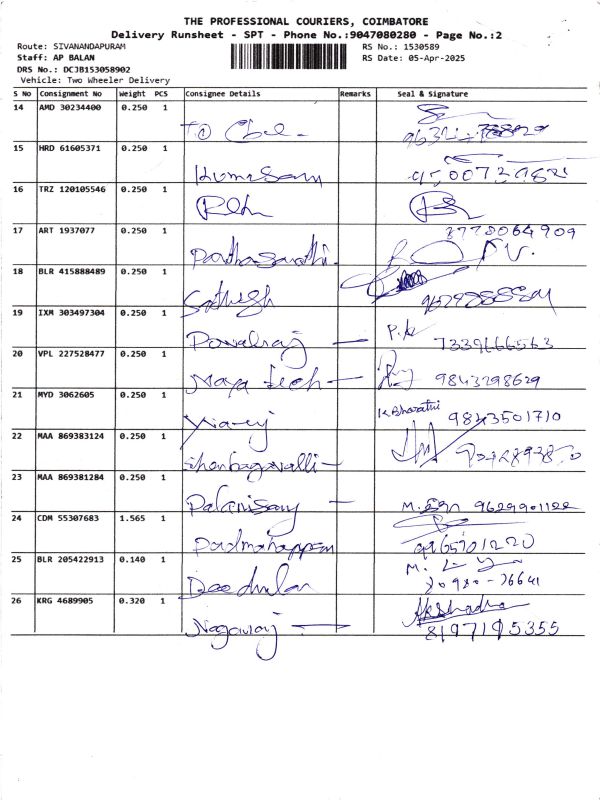 THE PROFESSIONAL COURIERS, COIMBATORE
Delivery Runsheet - SPT - Phone No.:9047080280 - Page No.:2
Route: SIVANANDAPURAM
RS No.: 1530589
Staff: AP BALAN
RS Date: 05-Apr-2025
DRS No.: DCJB153058902
Vehicle: Two Wheeler Delivery
S No Consignment No Weight PCS Consignee Details Remarks Seal & Signature
14 AMD 30234400 0.250 1
15 HRD 61605371 0.250 1
Kumarsamy
16 TRZ 120105546 0.250 1
17 ART 1937077 0.250 1
Parthasarathi
18 BLR 415888489 0.250 1
Sathish
19 IXM 303497304 0.250 1
Ponnalraj — 7339666563
20 VPL 227528477 0.250 1
Naya tech — 9843298629
21 MYD 3062605 0.250 1
K Bharathi
9843501710
22 MAA 869383124 0.250 1
Shenbagavalli —
23 MAA 869381284 0.250 1
Palanisamy — 9629901122
24 CDM 55307683 1.565 1
9965701220
25 BLR 205422913 0.140 1
26 KRG 4689905 0.320 1
Akshadha
Nagaraj — 8197195355